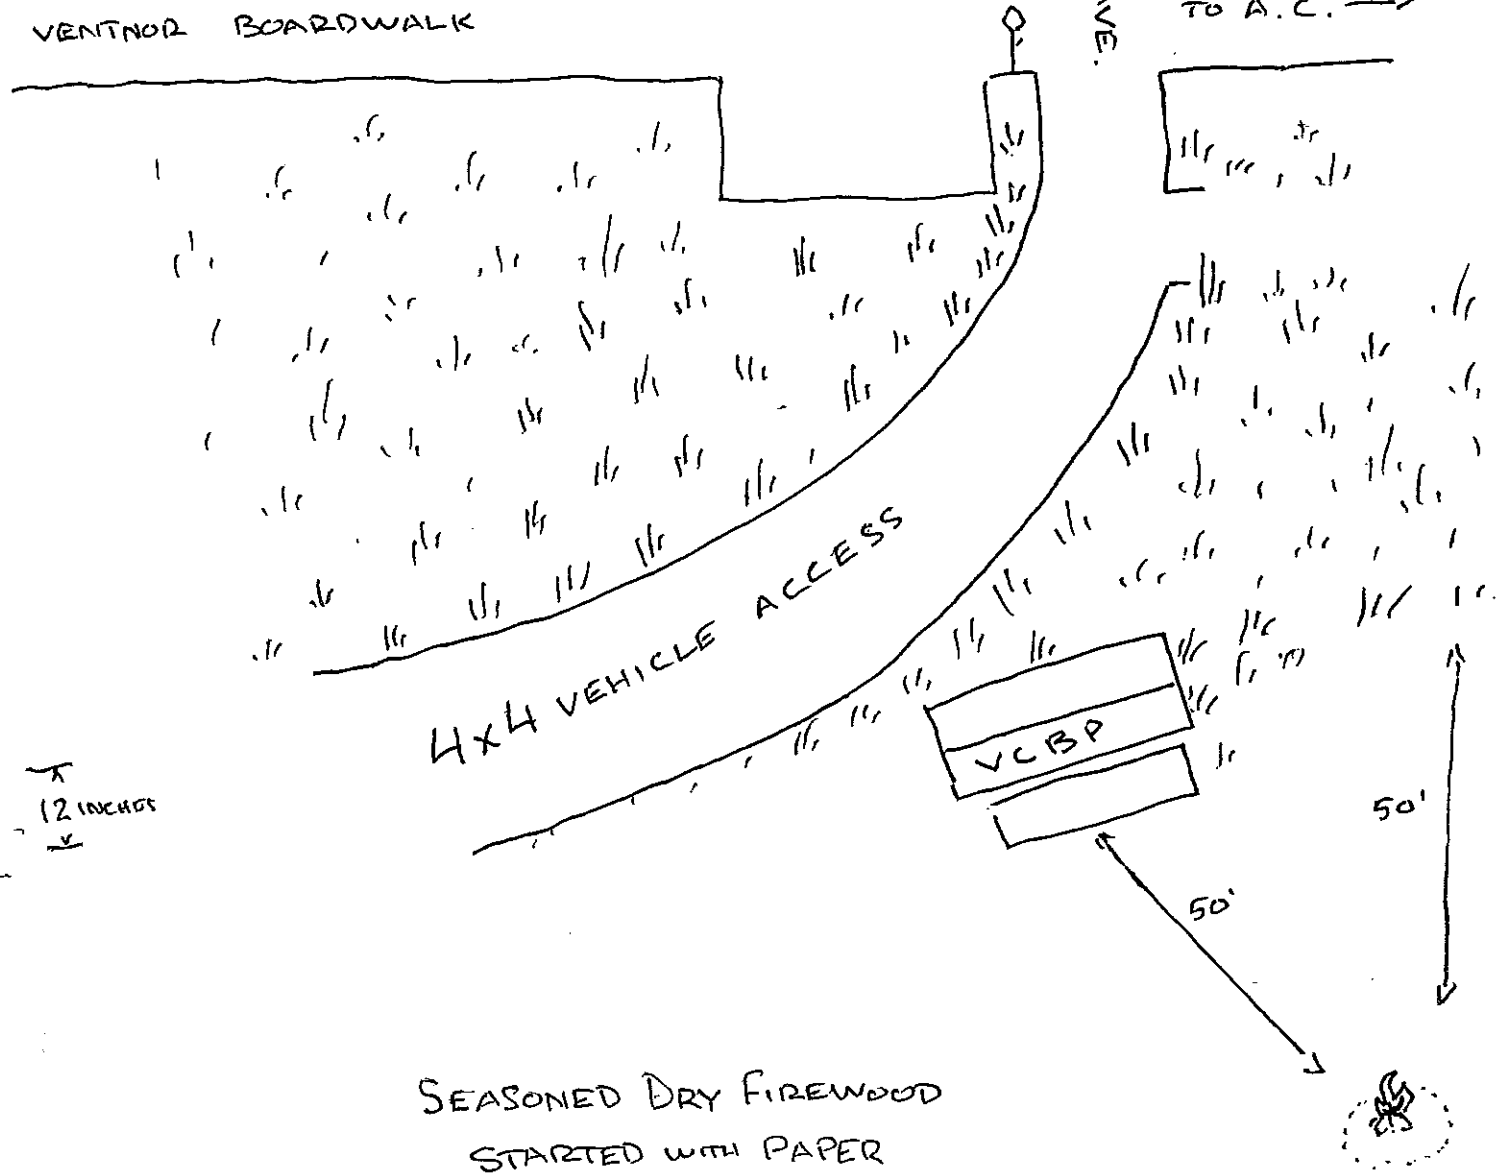 VENTNOR BOARDWALK
VE.
TO A.C.
4x4 VEHICLE ACCESS
VCBP
12 INCHES
50'
50'
SEASONED DRY FIREWOOD
STARTED WITH PAPER